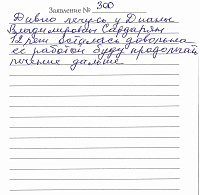 Заявление № 300
Давно лечусь у Дианы
Владимировны Сардарян
12 лет осталась довольна
ее работой буду продолжать
лечение дальше